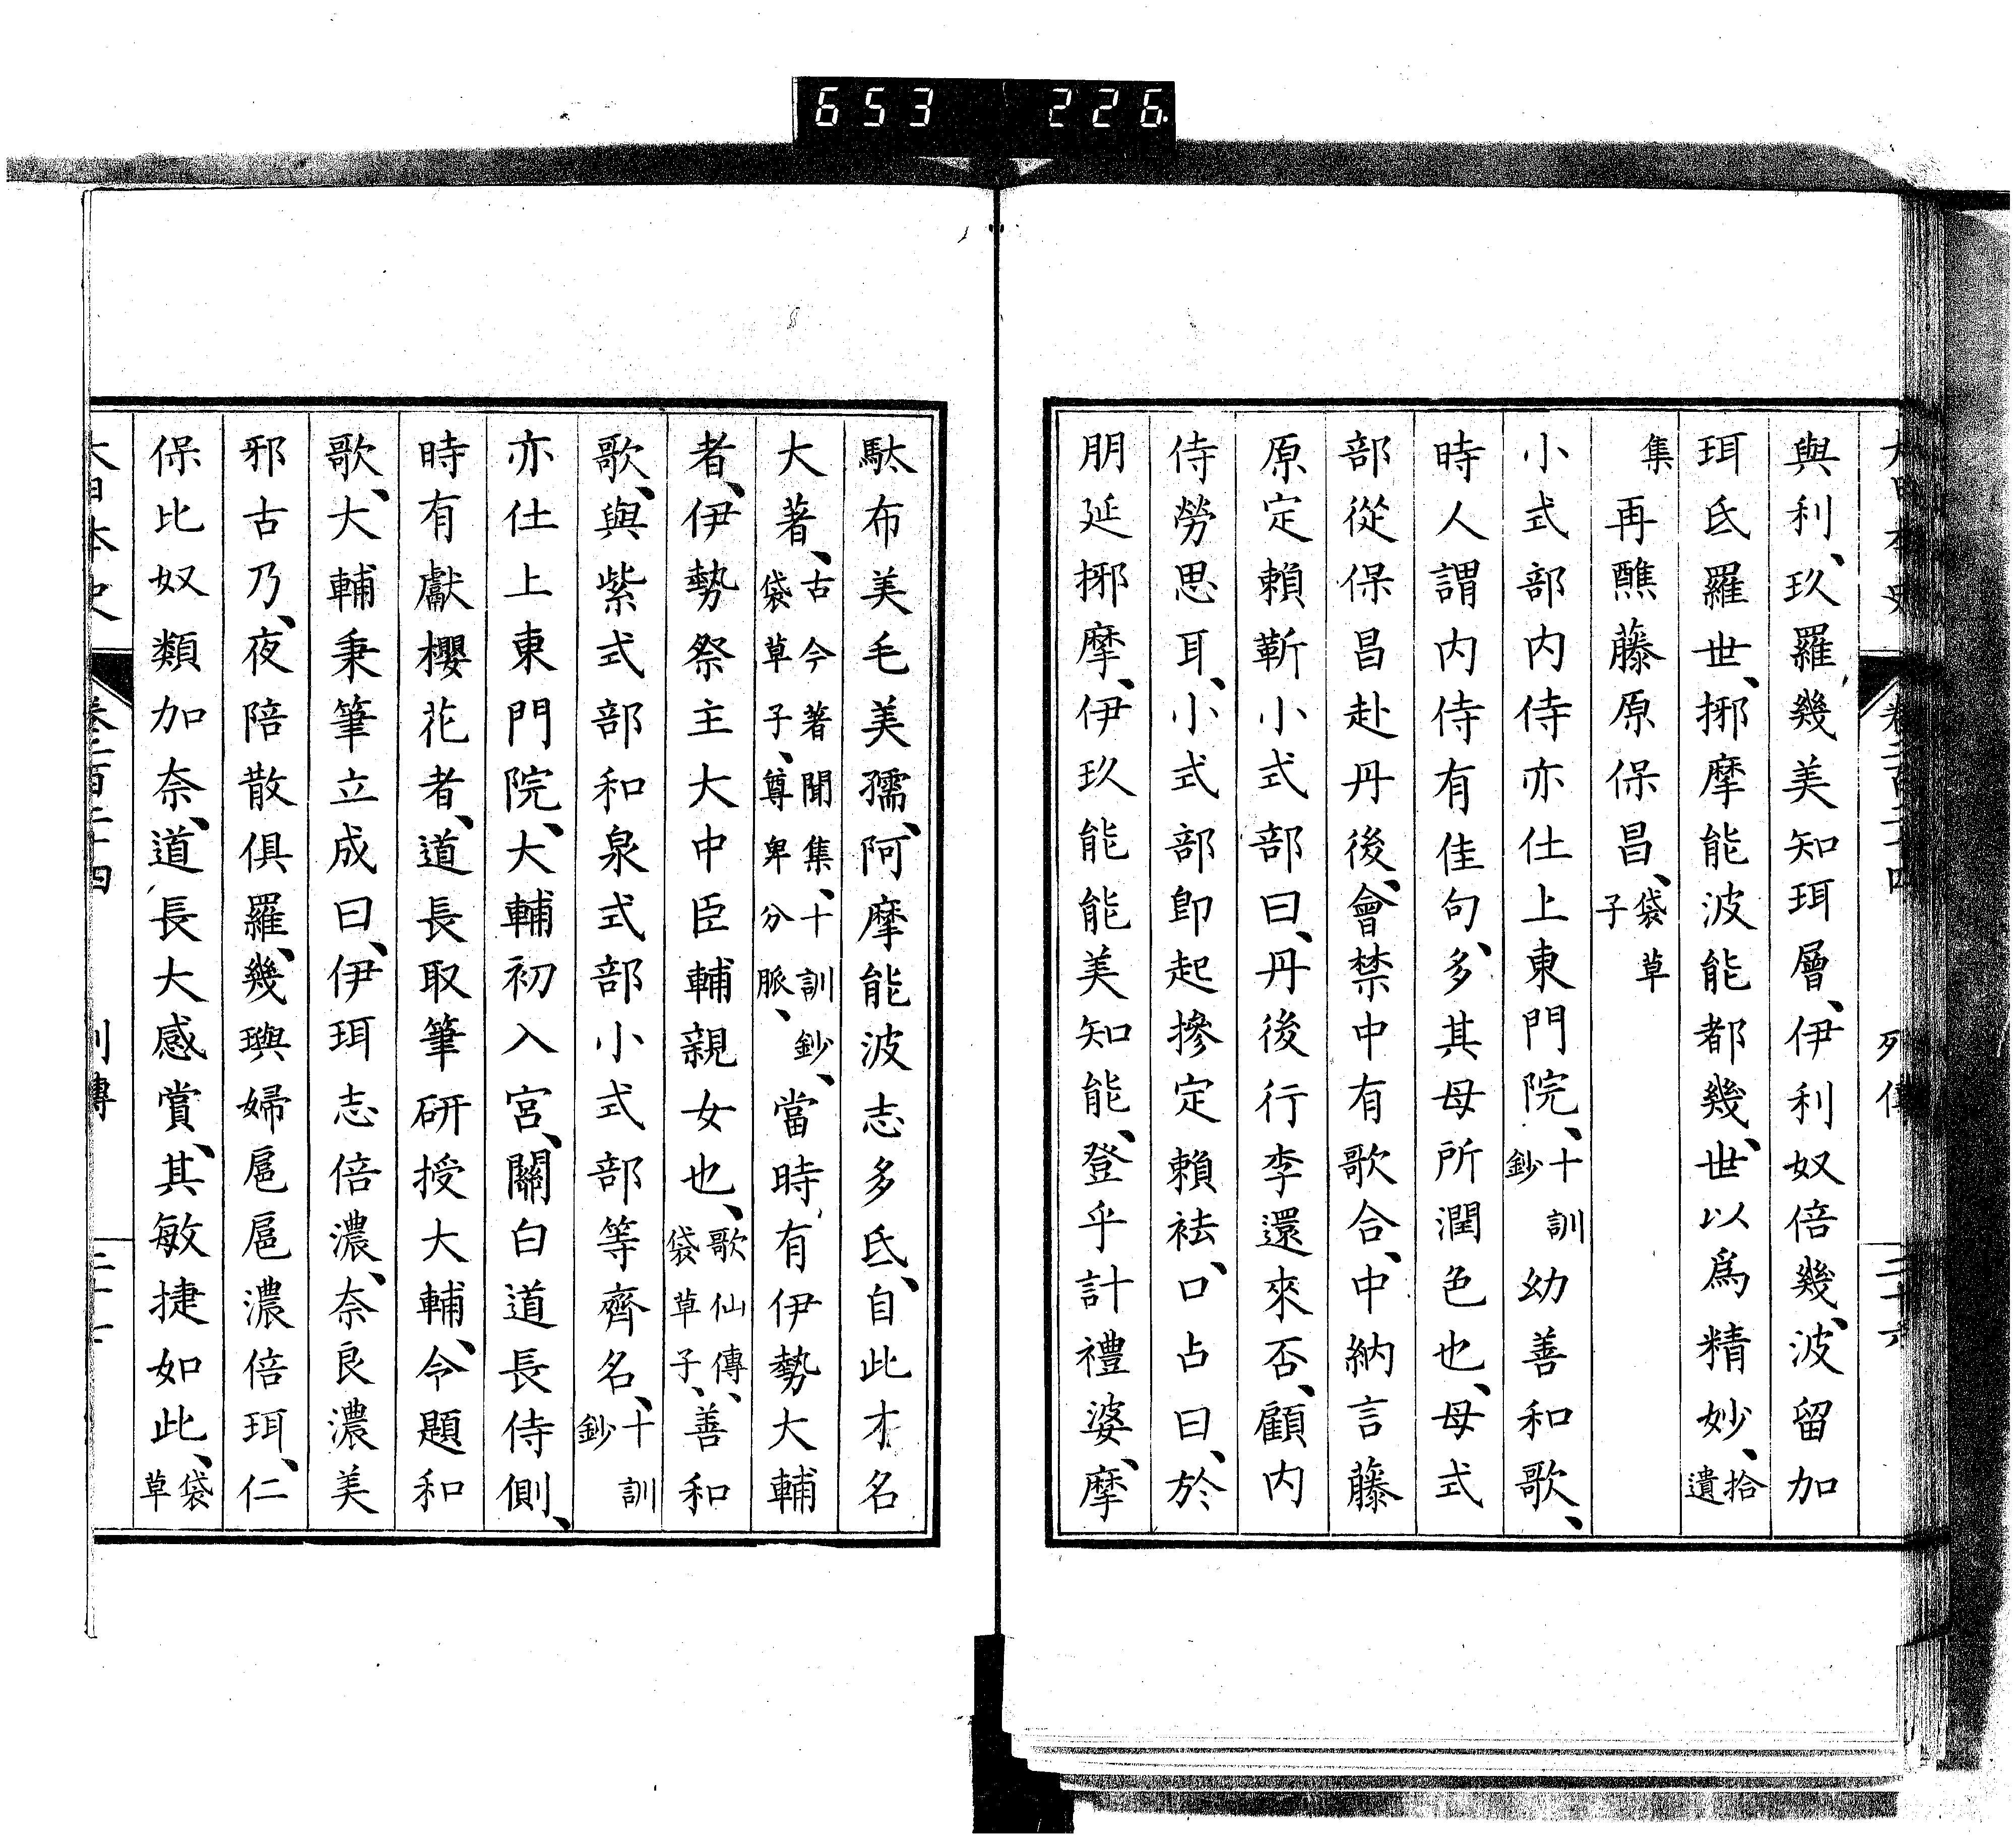 653 226
大日本史 卷二百二十四 列傳 三十六
與利、玖羅幾美知珥層、伊利奴倍幾、波留加
珥氐羅世、挪摩能波能都幾、世以爲精妙、拾遺
集再醮藤原保昌、袋草子
小式部内侍亦仕上東門院、十訓鈔幼善和歌、
時人謂内侍有佳句、多其母所潤色也、母式
部從保昌赴丹後、會禁中有歌合、中納言藤
原定賴靳小式部曰、丹後行李還來否、顧内
侍勞思耳、小式部卽起摻定賴袪、口占曰、於
朋延挪摩、伊玖能能美知能、登乎計禮婆、摩、
駄布美毛美孺、阿摩能波志多氐、自此才名
大著、古今著聞集、十訓鈔、袋草子、尊卑分脈、當時有伊勢大輔
者、伊勢祭主大中臣輔親女也、歌仙傳、袋草子、善和
歌、與紫式部和泉式部小式部等齊名、十訓鈔
亦仕上東門院、大輔初入宮、關白道長侍側、
時有獻櫻花者、道長取筆研授大輔、令題和
歌、大輔秉筆立成曰、伊珥志倍濃、奈良濃美
邪古乃、夜陪散俱羅、幾璵婦扈扈濃倍珥、仁
保比奴類加奈、道長大感賞、其敏捷如此、袋草
大日本史 卷二百二十四 列傳 三十七